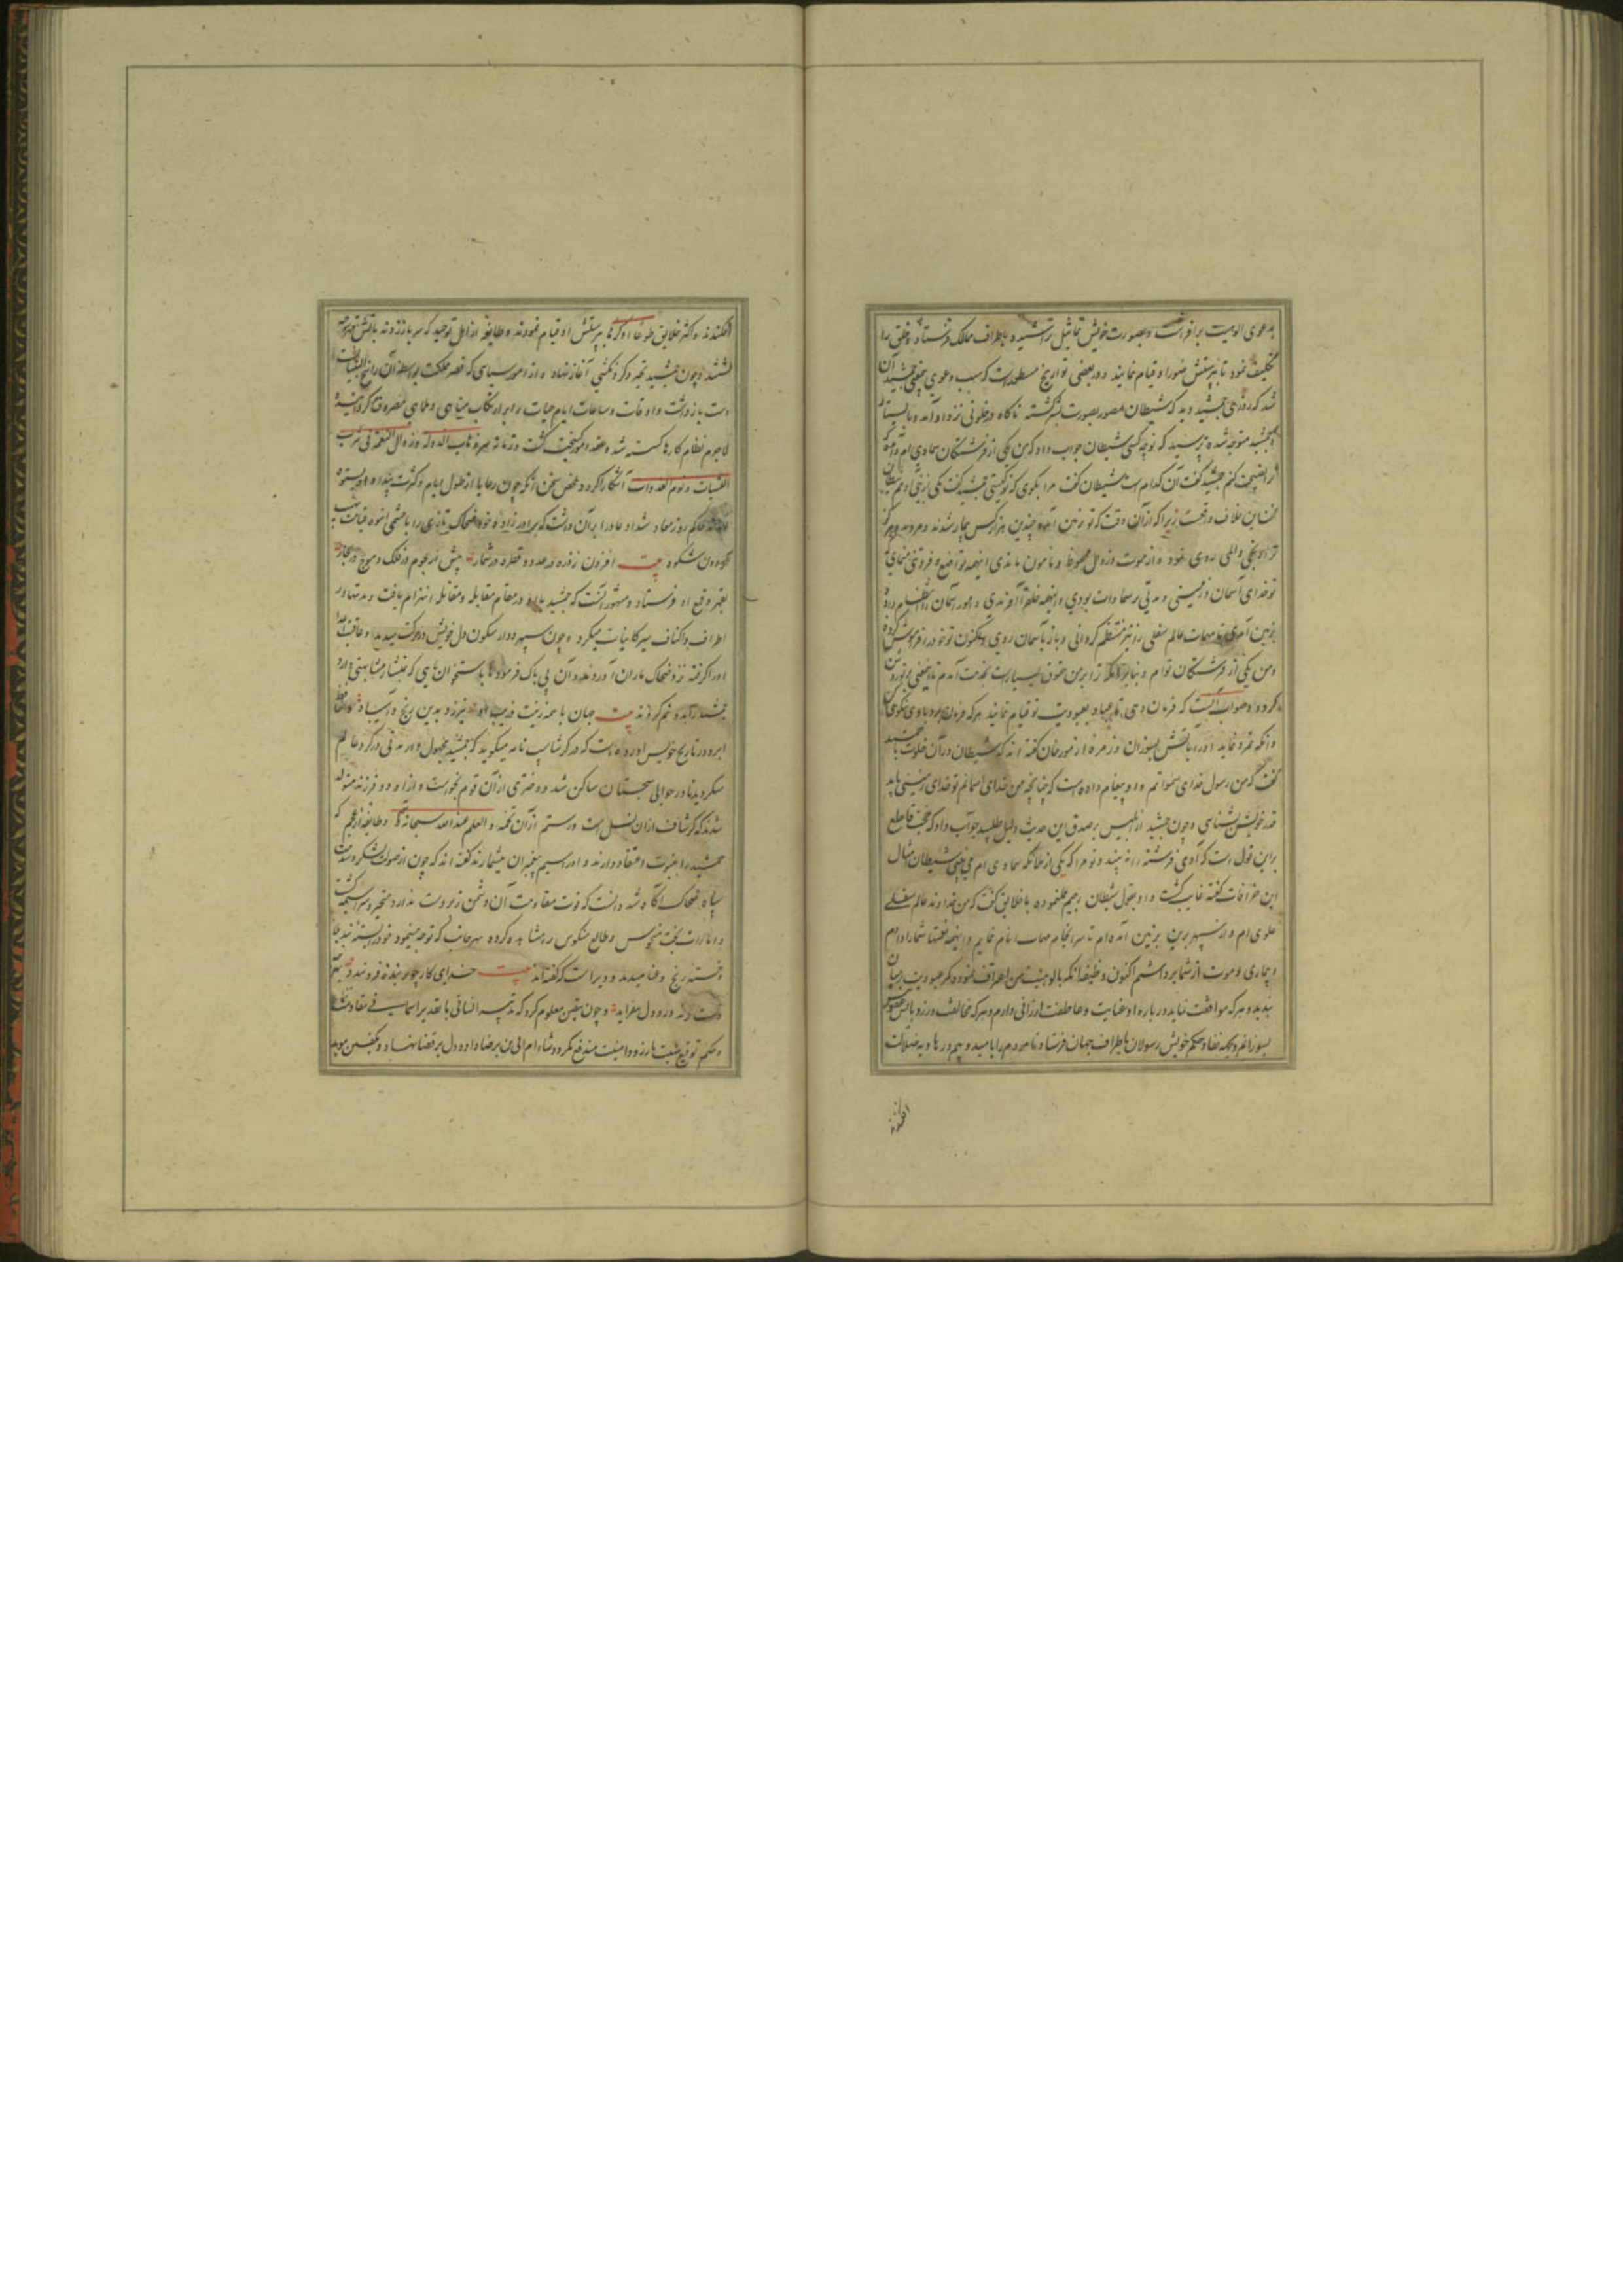 بدعوی الوهیت برافراشت و بصورت خویش تماثیل تراشیده باطراف ممالک فرستاد و خلق را
تکلیف نمود تا بپرستش صور او قیام نمایند و در بعضی تواریخ مسطورست که سبب دعوی جمشید آن
شد که روزی جمشید دید که شیطان مصور بصورت بشر گشته ناگاه در خلوتی نزد او آمد و بایستاد
جمشید متوجه شده پرسید که تو چه کسی شیطان جواب داد که من یکی از فرشتگان سماوی ام آمده
ترا نصیحت کنم جمشید گفت آن کدام است شیطان گفت مرا بگوی که تو کیستی جمشید گفت یکی از بنی آدم شیطان
گفت این خلاف واقعست زیرا که از آن وقت که تو بزمین آمده چندین هزار کس بیمار شدند و مردند و هرگز
ترا رنجی و المی روی ننمود و از موت و زوال محفوظ و مامون ماندی اینهمه تواضع و فروتنی منمای
تو خدای آسمان و زمینی و مدتی بر سماوات بودی و اینهمه خلق را آفریدی و امور آسمان را انتظام داده
بزمین آمدی تا مهمات عالم سفلی را نیز منتظم گردانی و باز بآسمان روی و اکنون تو خود را فراموش کرده
و من یکی از فرشتگان توام و بنابر آنکه ترا بر من حقوق بسیارست بخدمت آمدم تا
گردد و صواب آنست که فرمان دهی تا عباد بعبودیت تو قیام نمایند هرکه فرمان برد با وی نیکوی کن
و آنکه تمرد نماید او را بآتش بسوزان و زمره از مورخان گفته اند که شیطان در آن خلوت با جمشید
گفت که من رسول خدای سمواتم و او پیغام داده است که چنانچه من خدای آسمانم تو خدای زمینی باید
قدر خویش بشناسی و چون جمشید از ابلیس بر صدق این حدیث دلیل طلبید جواب داد که حجت قاطع
براین قول است که آدمی فرشته را نه بیند و تو مرا که یکی از ملائکه سماوی ام می بینی شیطان امثال
این خرافات گفته غایب گشت و او بقول شیطان رجیم عمل نموده با خلایق گفت که من خداوند عالم سفلی
علوی ام و از سپهر برین بزمین آمده ام تا سرانجام مهمات انام نمایم و اینهمه نعمتها شما را دادم
و بیماری و موت از شما برداشتم اکنون وظیفه آنکه بالوهیت من اعتراف نموده کمر عبودیت بر میان
بندید و هرکه موافقت نماید درباره او عنایت و عاطفت ارزانی دارم و هرکه مخالفت ورزد بآتش عقوبتش
بسوزانم و بجهت نفاذ حکم خویش رسولان باطراف جهان فرستاد تا مردم را بامید و بیم در هاویه ضلالت
افکندند
افکندند و اکثر خلایق طوعا او کرها بپرستش او قیام نمودند و طایفه از اهل توحید که سر باز زدند بآتش قهر سوخته
گشتند و چون جمشید تجبر و گردنکشی آغاز نهاد و از امور سیاسی که قصر مملکت بواسطه آن راسخ البنیان است
دست بازداشت و اوقات و ساعات ایام حیات را بر ارتکاب مناهی و ملاهی مصروف گردانید
لاجرم نظام کارها گسسته شد و عقد امور گسیخت گشت و زمانه
آشکارا کرد و ملخص سخن آنکه چون رعایا از طول ایام و کثرت
حاکم روزمعاد شداد عاد را بر آن داشت که برادر زاده خود ضحاک تازی را با حشمی انبوه
گردون شکوه بیت افزون ز ذره در عدد و قطره در شمار بیش از نجوم در فلک و موج در بحار
بقهر و قمع او فرستاد و مشهور آنست که جمشید در مقام مقابله و مقاتله انهزام یافت و مدتها در
اطراف و اکناف سیر کاینات میکرد و چون سپهر دوار سکون دل خویش در حرکت میدید و عاقبت
او را گرفته نزد ضحاک ماران آوردند و آن بی باک فرمود تا باستخوان ماهی که بمنشار مشابهتی دارد
جمشید را بدو نیم کردند بیت جهان با همه زینت و زیب او نیرزد بدین رنج و آسیب او و حافظ
ابرو در تاریخ خویش آورده است که هر گرشاسپ نامه میگوید که جمشید مجهول وار مدتی در گرد عالم
میگردید تا در حوالی سجستان ساکن شد و دختری از آن قوم بخواست و از او دو فرزند متولد
شدند که گرشاسف از آن نسل است و رستم از آن تخمه و العلم عند الله سبحانه و طایفه از عجم که
جمشید را بنبوت اعتقاد دارند و او را سیم پیغمبران میشمارند گفته اند که چون از صولت لشکر و شدت
سپاه ضحاک آگاه شد دانست که قوت مقاومت آن دشمن زبردست ندارد متحیر و سراسیمه گشت
و امارات بخت منحوس و طالع منکوس را مشاهده کرده بهر جانب که توجه مینمود خود را بسته بند بلا
و خسته رنج و عنا میدید و دیر است که گفته اند بیت خدای کار چو بر بنده فرو بندد
دست زند درد دل بفزاید و چون بیقین معلوم کرد که تدبیر انسانی با تقدیر آسمانی مقاومت
و حکم توقیع مشیت بآرزو و امنیت مندفع نگردد